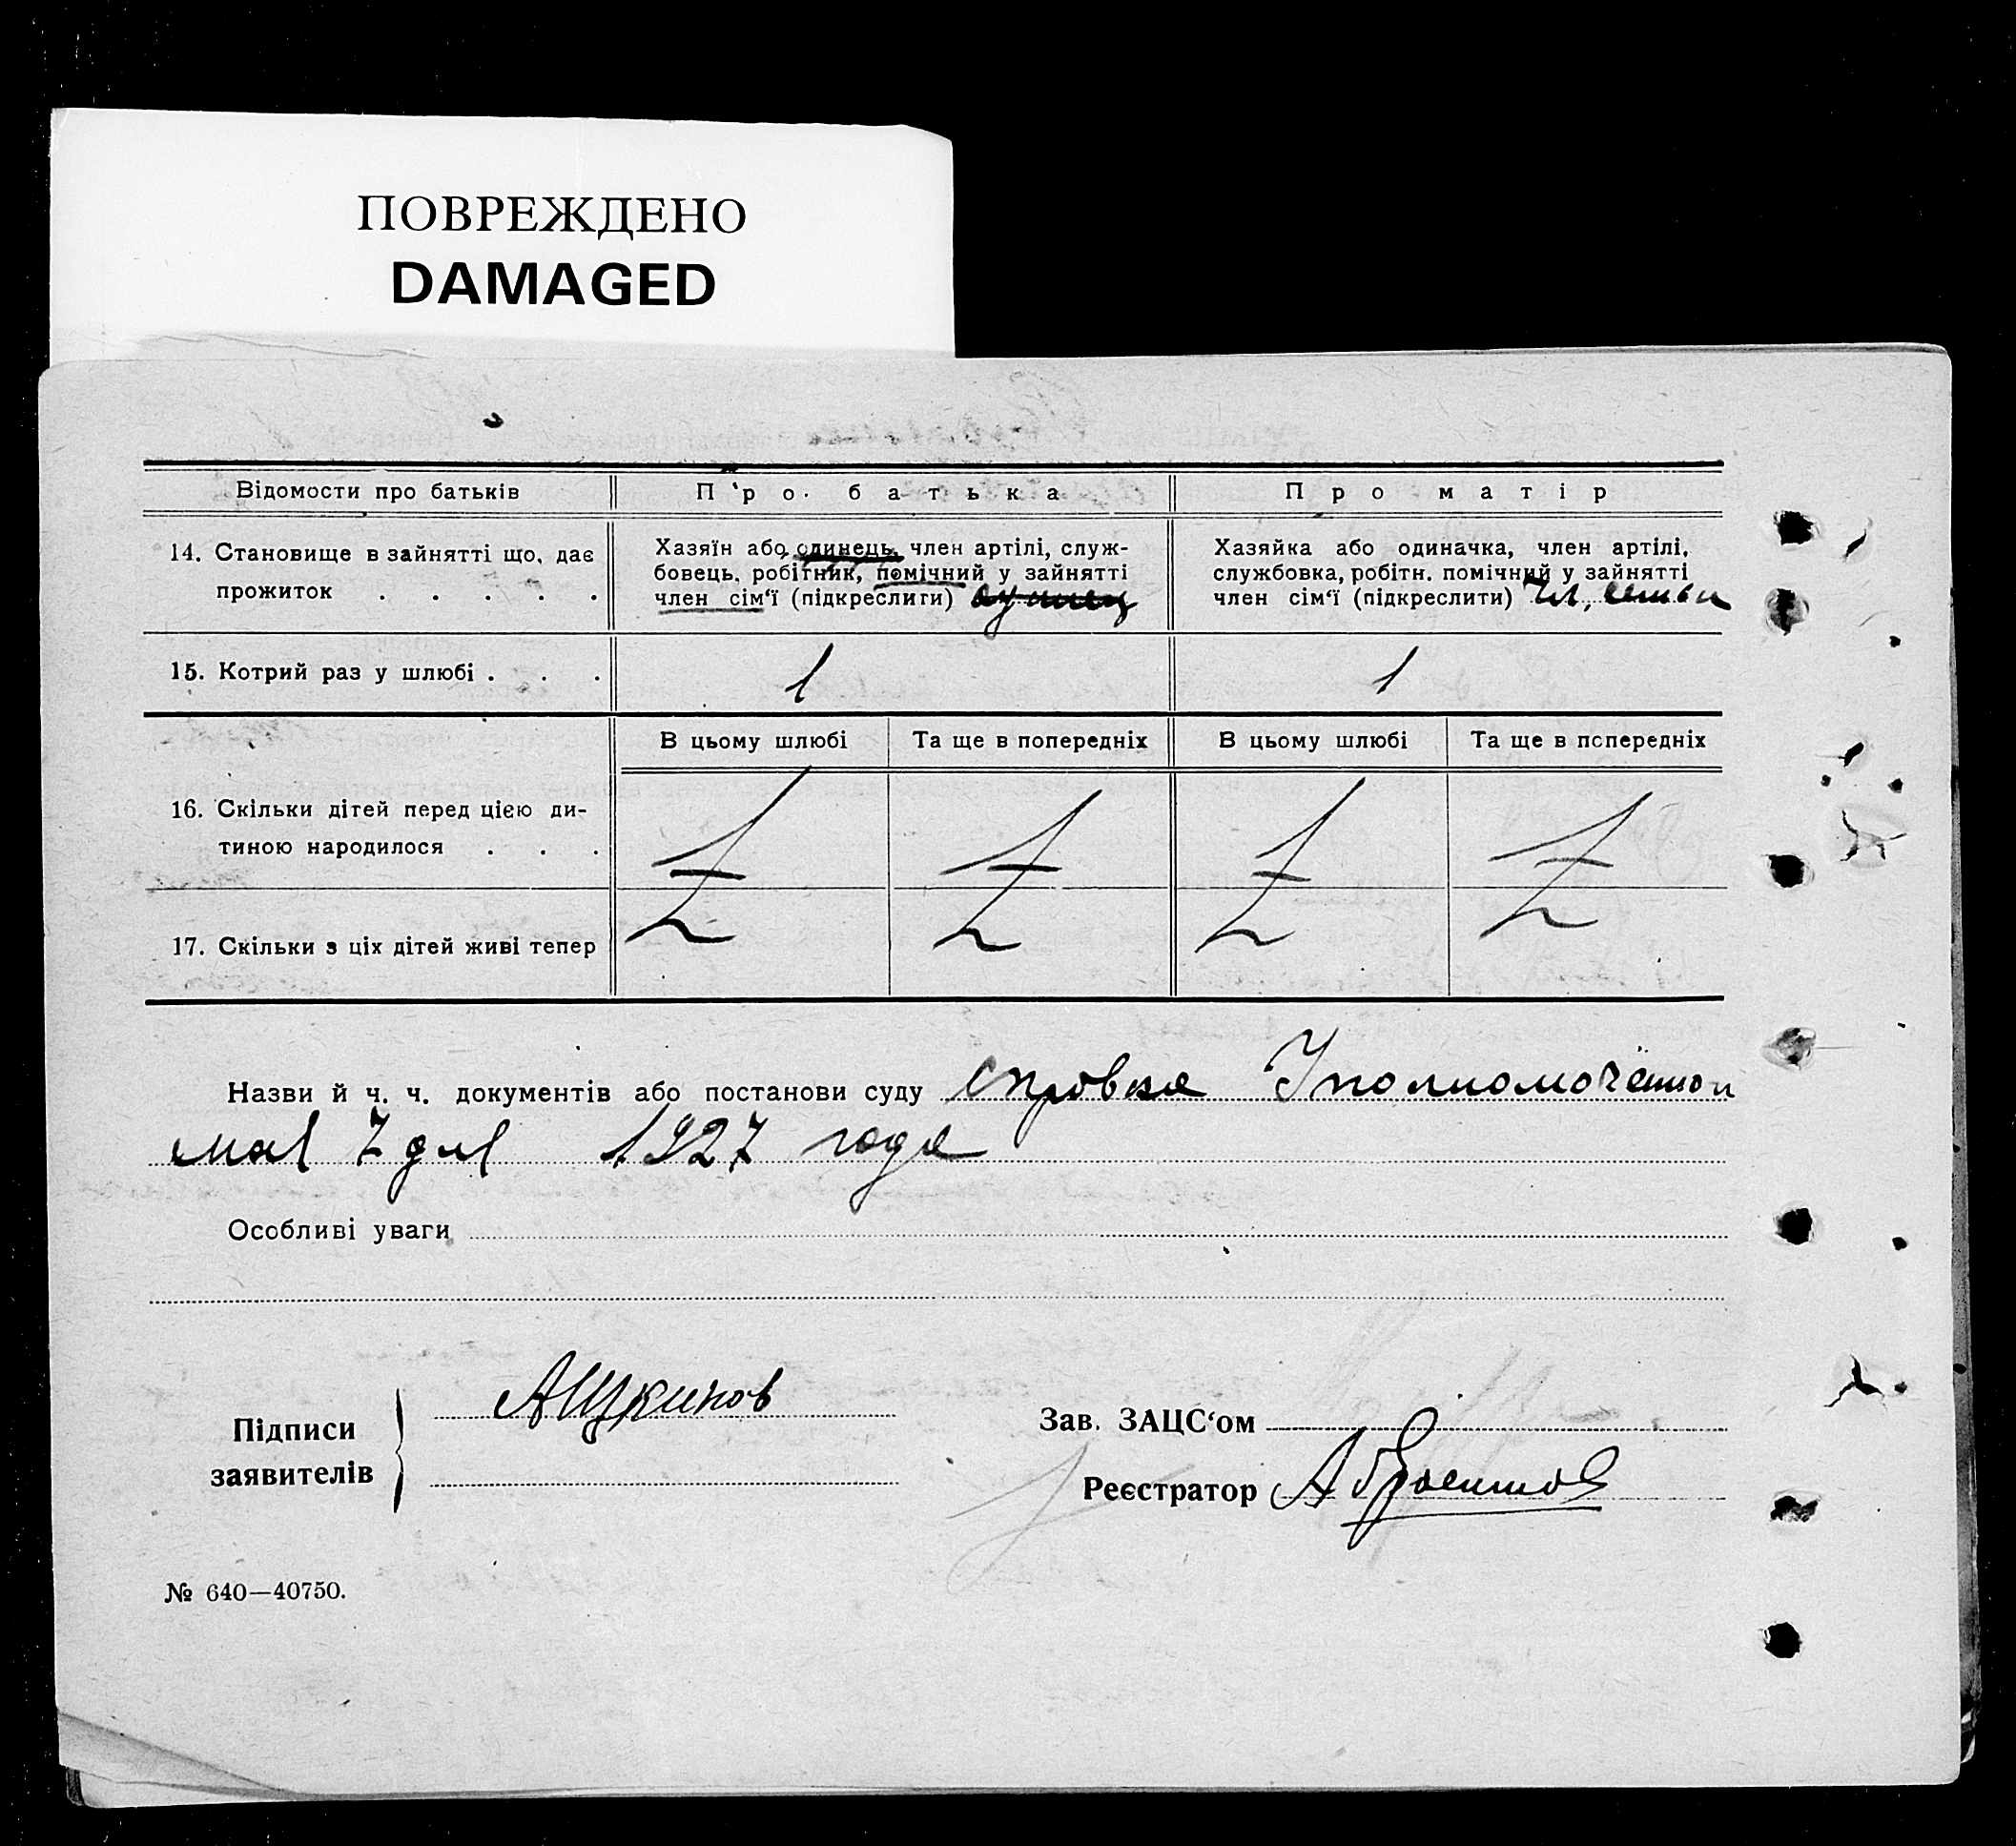 ПОВРЕЖДЕНО
DAMAGED
Відомости про батьків
Про батька
Про матір
14. Становище в зайнятті що, дає
прожиток . . . . .
Хазяїн або одинець, член артілі, служ-
бовець, робітник, помічний у зайнятті
член сім‘ї (підкреслити)
Хазяйка або одиначка, член артілі,
службовка, робітн. помічний у зайнятті
член сім‘ї (підкреслити) Чл, семьи
15. Котрий раз у шлюбі . . .
1
1
В цьому шлюбі
Та ще в попередніх
В цьому шлюбі
Та ще в попередніх
16. Скільки дітей перед цією ди-
тиною народилося . . .
17. Скільки з ціх дітей живі тепер
Назви й ч. ч. документів або постанови суду справка Уполномоченном
мая 7 дня 1927 года
Особливі уваги
Підписи
заявителів
Зав. ЗАЦС‘ом
Реєстратор
№ 640—40750.